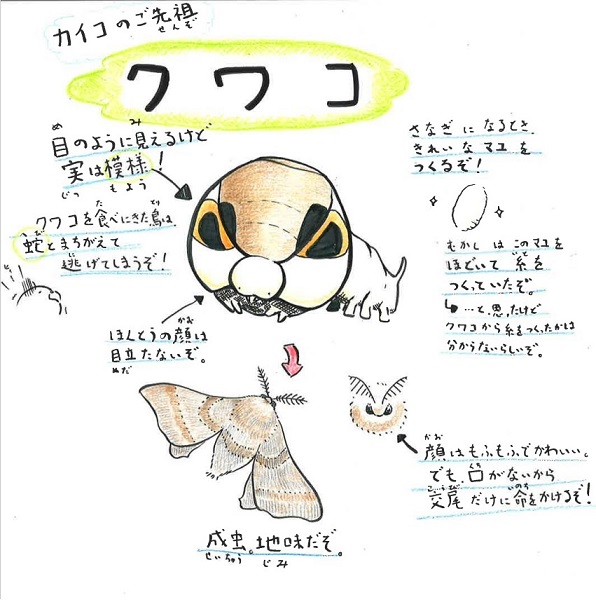 カイコのご先祖
せんぞ
クワコ
め み
目のように見えるけど
実は模様！
じつ もよう
た とり
クワコを食べにきた鳥は、
へび
蛇とまちがえて
に
逃げてしまうぞ！
かお
ほんとうの顔は
目立たないぞ。
めだ
さなぎになるとき、
きれいなマユを
つくるぞ！
むかしはこのマユを
いと
ほどいて糸を
つくっていたぞ。
…と思ったけど
クワコから糸をつくったかは
分からないらしいぞ。
かお
顔はもふもふでかわいい。
くち
でも、口がないから
こうび いのち
交尾だけに命をかけるぞ！
成虫。地味だぞ。
せいちゅう じみ